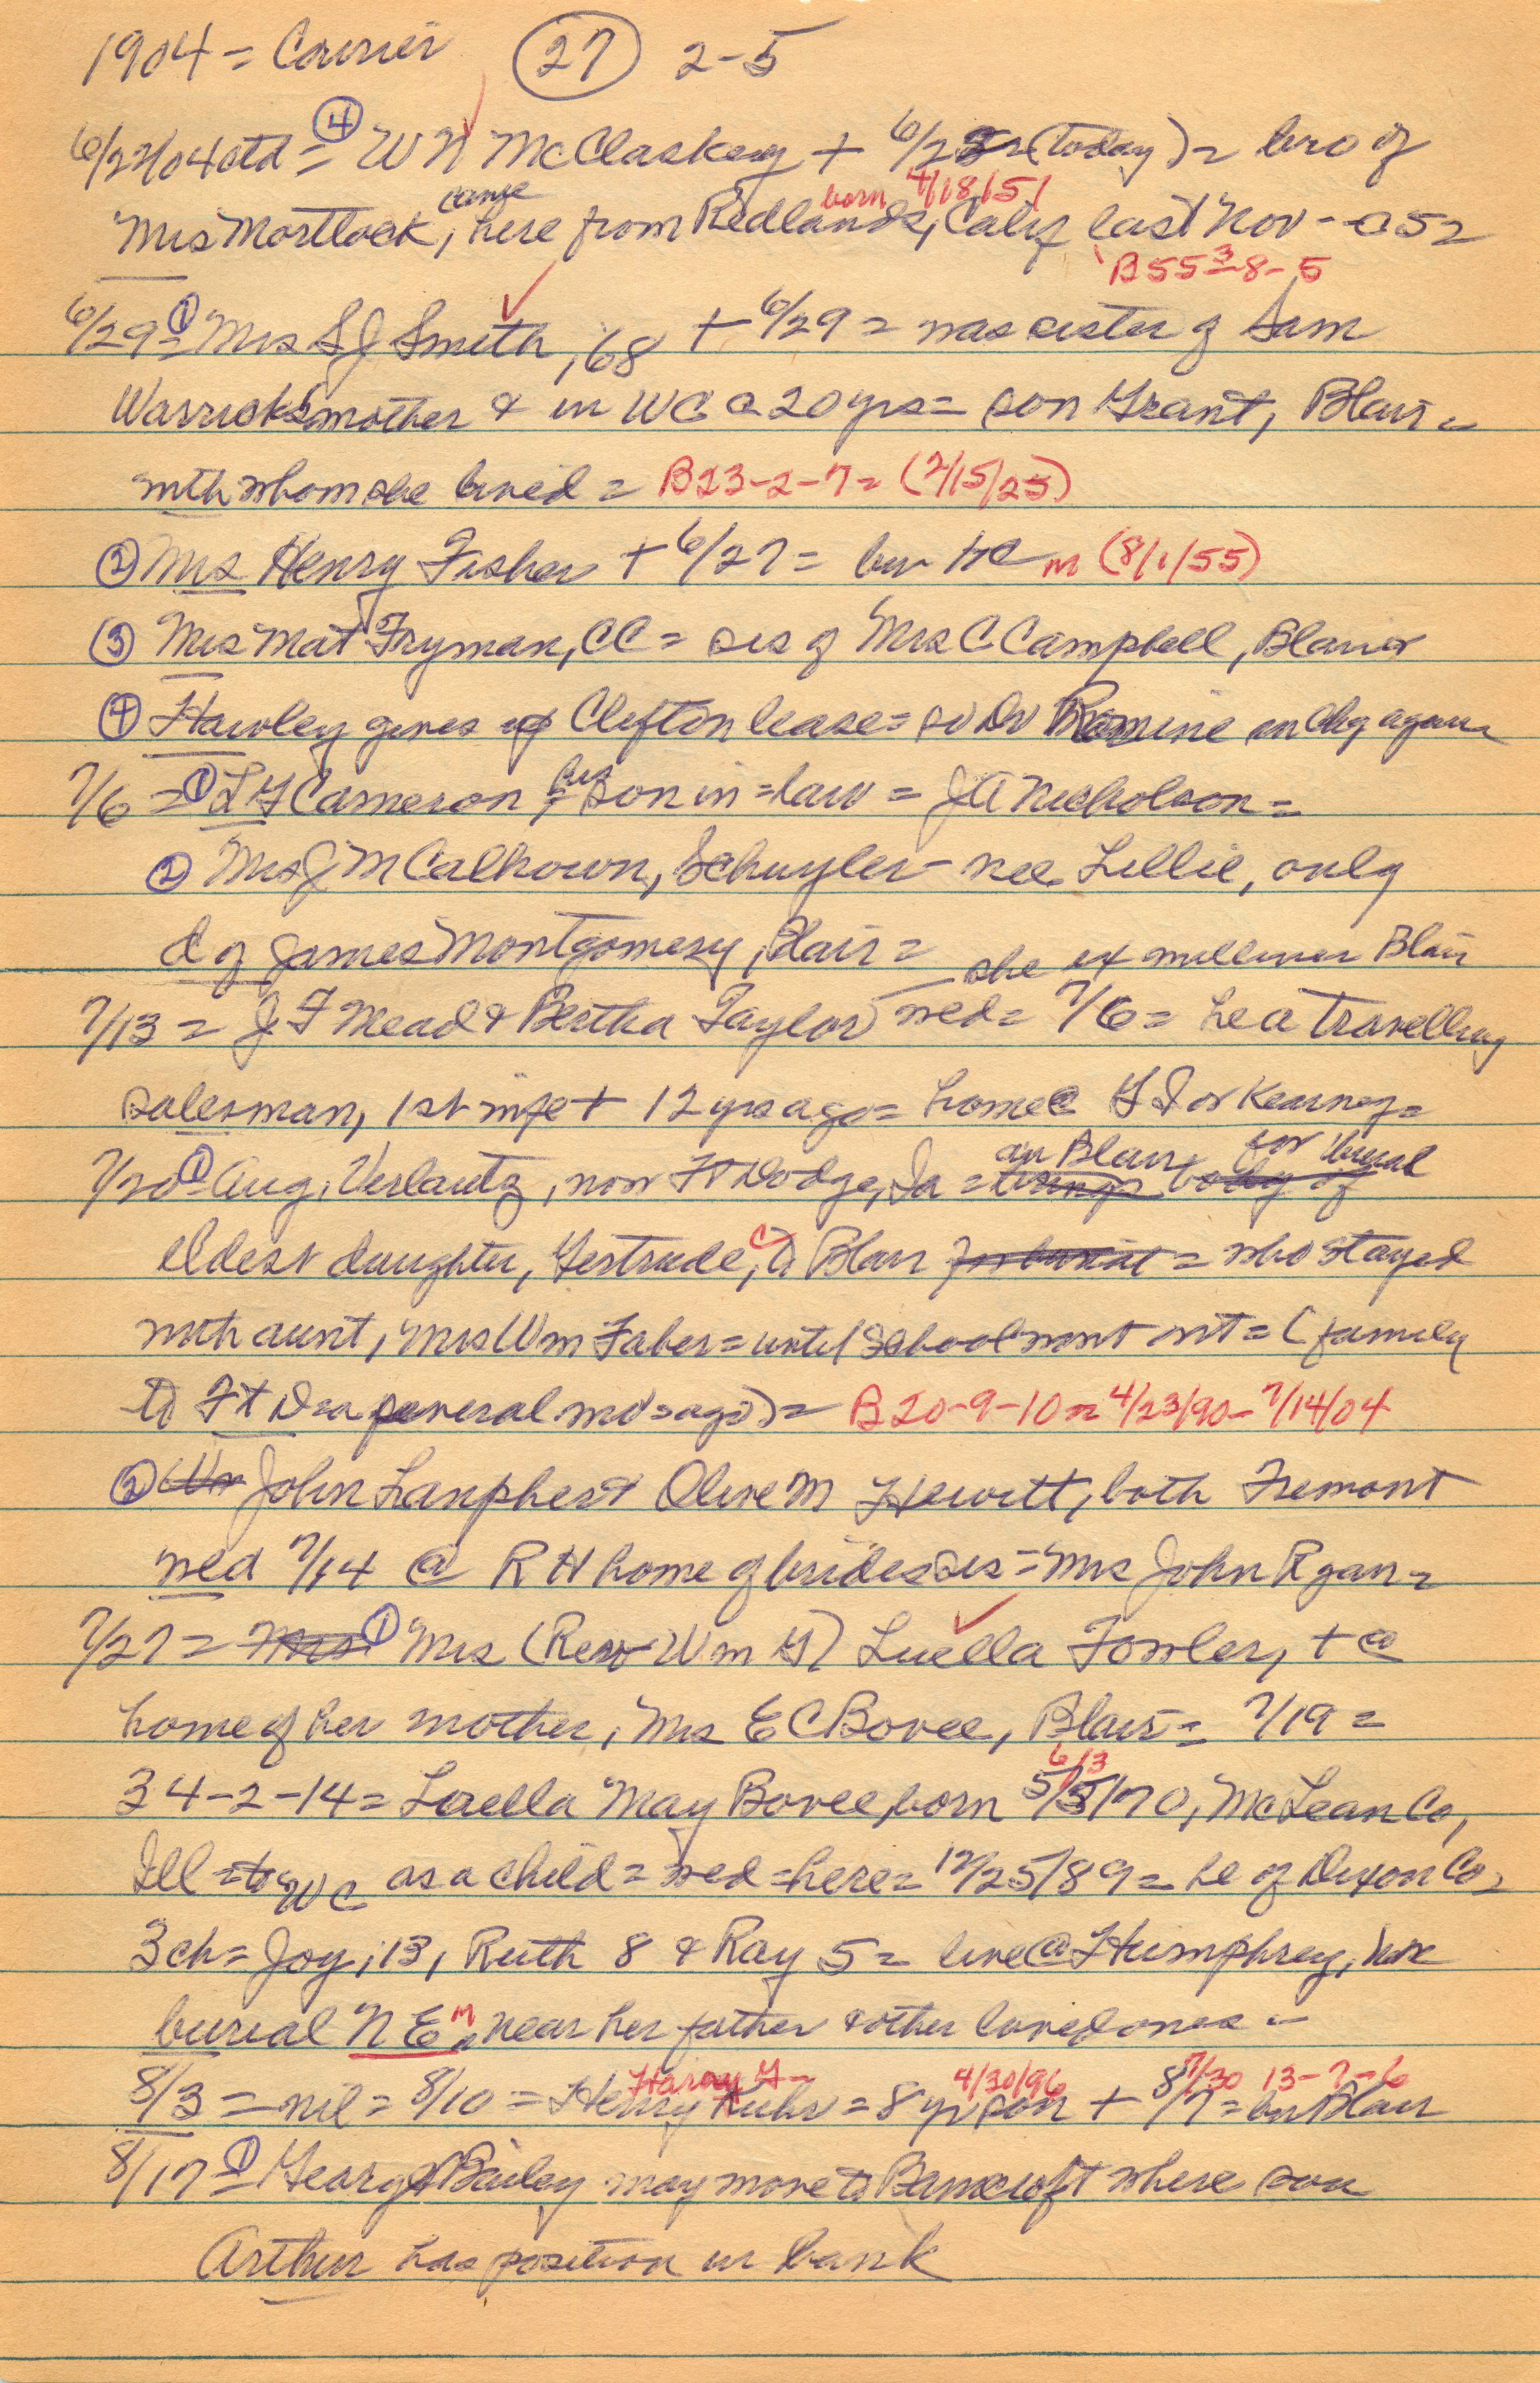 1904 = Courier (27) 2-5
6/22/04 ctd = ④ W N McClaskey + 6/22 (today) = bro of
came born 4/18/51
Mrs Mortlock, here from Redlands, Calif last Nov - a 52
B 55 3-8-5
6/29 = ① Mrs S J Smith, 68 + 6/29 = was sister of Sam
Warrick's mother & in WC a 20 yrs = son Grant, Blair =
with whom she lived = B23-2-7 = (2/15/25)
② Mrs Henry Fisher + 6/27 = bur HC m (8/1/55)
③ Mrs Mat Fryman, CC = sis of Mrs C Campbell, Blair
④ Hawley gives up Clifton lease = so Dr Romine in chg again
7/6 = ① L G Cameron, his son in = law = J A Nicholson =
② Mrs J M Calhoun, Schuyler - nee Lillie, only
d of James Montgomery, Blair =
she ex milliner Blair
7/13 = J F Mead & Bertha Taylor wed = 7/6 = he a travelling
salesman, 1st wife + 12 yrs ago = home @ G I or Kearney =
in Blair for burial
7/20 = ① Aug. Verlautz, now Ft Dodge, Ia = brings body of
eldest daughter, Gertrude, @ Blair for burial = who stayed
with aunt, Mrs Wm Faber = until school went out = (family
to Ft D a several mo's ago) = B 20-9-10 = 4/23/90 - 7/14/04
② Wm John Lanpher & Olive M Hewitt, both Fremont
wed 7/14 @ R H home of brides sis = Mrs John Ryan =
7/27 = Mrs ① Mrs (Rev Wm G) Luella Fowler, + @
home of her mother, Mrs E C Bovee, Blair = 7/19 =
6/3
34-2-14 = Luella May Bovee, born 5/5/70, McLean Co,
Ill = to WC as a child = wed = here = 12/25/89 = he of Dixon Co,
3 ch = Joy, 13, Ruth 8 & Ray 5 = live @ Humphrey,
burial N E m near her father & other loved ones =
Harry G - 4/30/96 7/30 13-2-6
8/3 = nil = 8/10 = Henry Kuhr = 8 yr son + 8/7 = bur Blair
8/17 = ① George Bailey may move to Bancroft where son
Arthur has position in bank